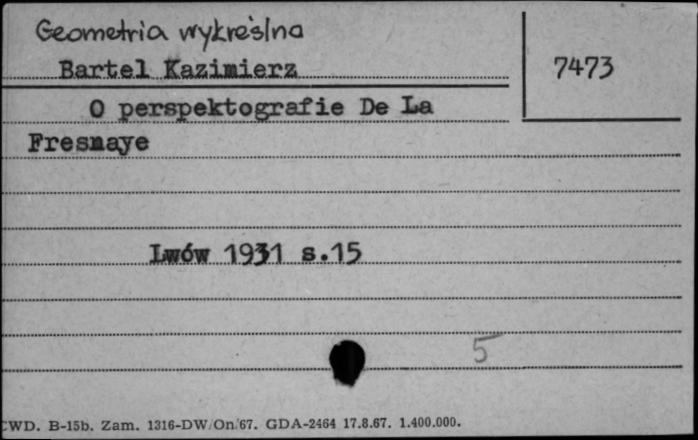 Geometria wykreślna
Bartel Kazimierz
7473
O perspektografie De La
Fresnaye
Lwów 1931 s.15
5
CWD. B-15b. Zam. 1316-DW/On/67. GDA-2464 17.8.67. 1.400.000.